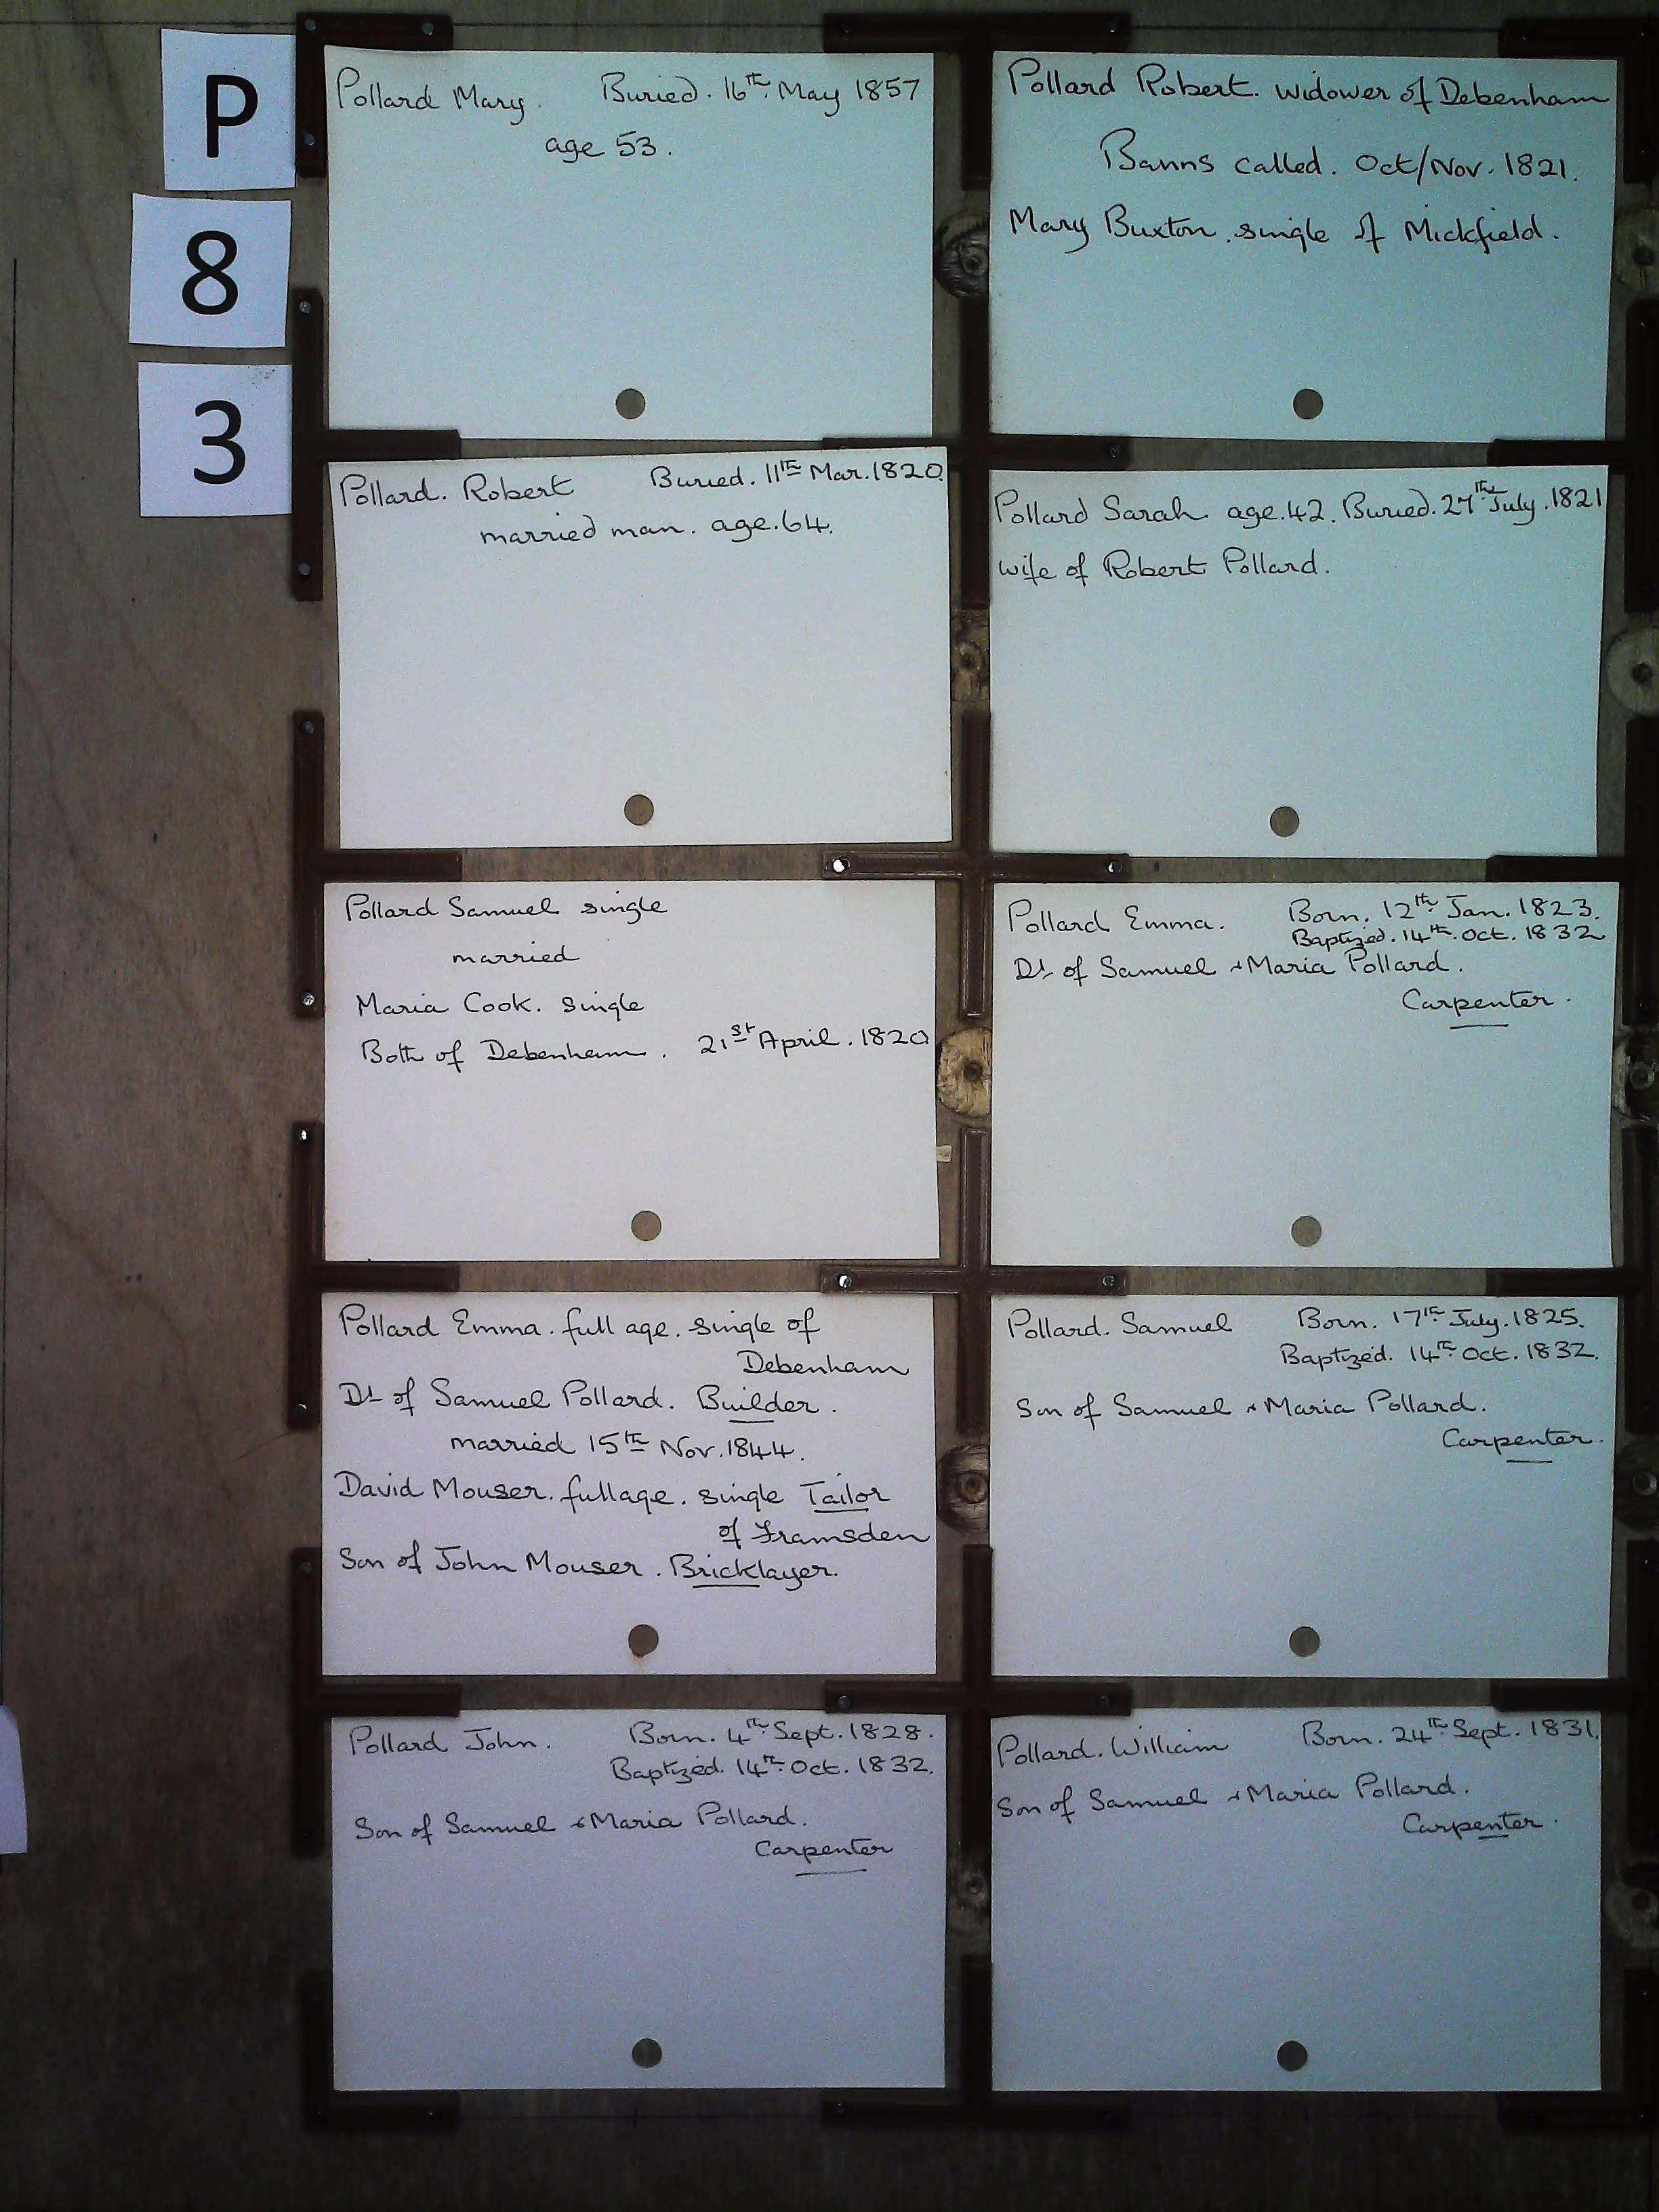 P
8
3
Pollard Mary. Buried. 16th. May 1857
age 53.
Pollard Robert. widower of Debenham
Banns called. Oct/Nov. 1821.
Mary Buxton. single of Mickfield.
Pollard. Robert Buried. 11th Mar. 1820.
married man. age. 64.
Pollard Sarah age. 42. Buried. 27th July. 1821
wife of Robert Pollard.
Pollard Samuel single
married
Maria Cook. single
Both of Debenham. 21st April. 1820
Pollard Emma. Born. 12th. Jan. 1823.
Baptized. 14th. Oct. 1832
Dt of Samuel + Maria Pollard.
Carpenter.
Pollard Emma. full age. single of
Debenham
Dt of Samuel Pollard. Builder.
married 15th Nov. 1844.
David Mouser. full age. single Tailor
of Framsden
Son of John Mouser. Bricklayer.
Pollard. Samuel Born. 17th July. 1825.
Baptized. 14th Oct. 1832.
Son of Samuel + Maria Pollard.
Carpenter.
Pollard John. Born. 4th Sept. 1828.
Baptized. 14th. Oct. 1832.
Son of Samuel + Maria Pollard.
Carpenter
Pollard. William Born. 24th Sept. 1831.
Son of Samuel + Maria Pollard.
Carpenter.